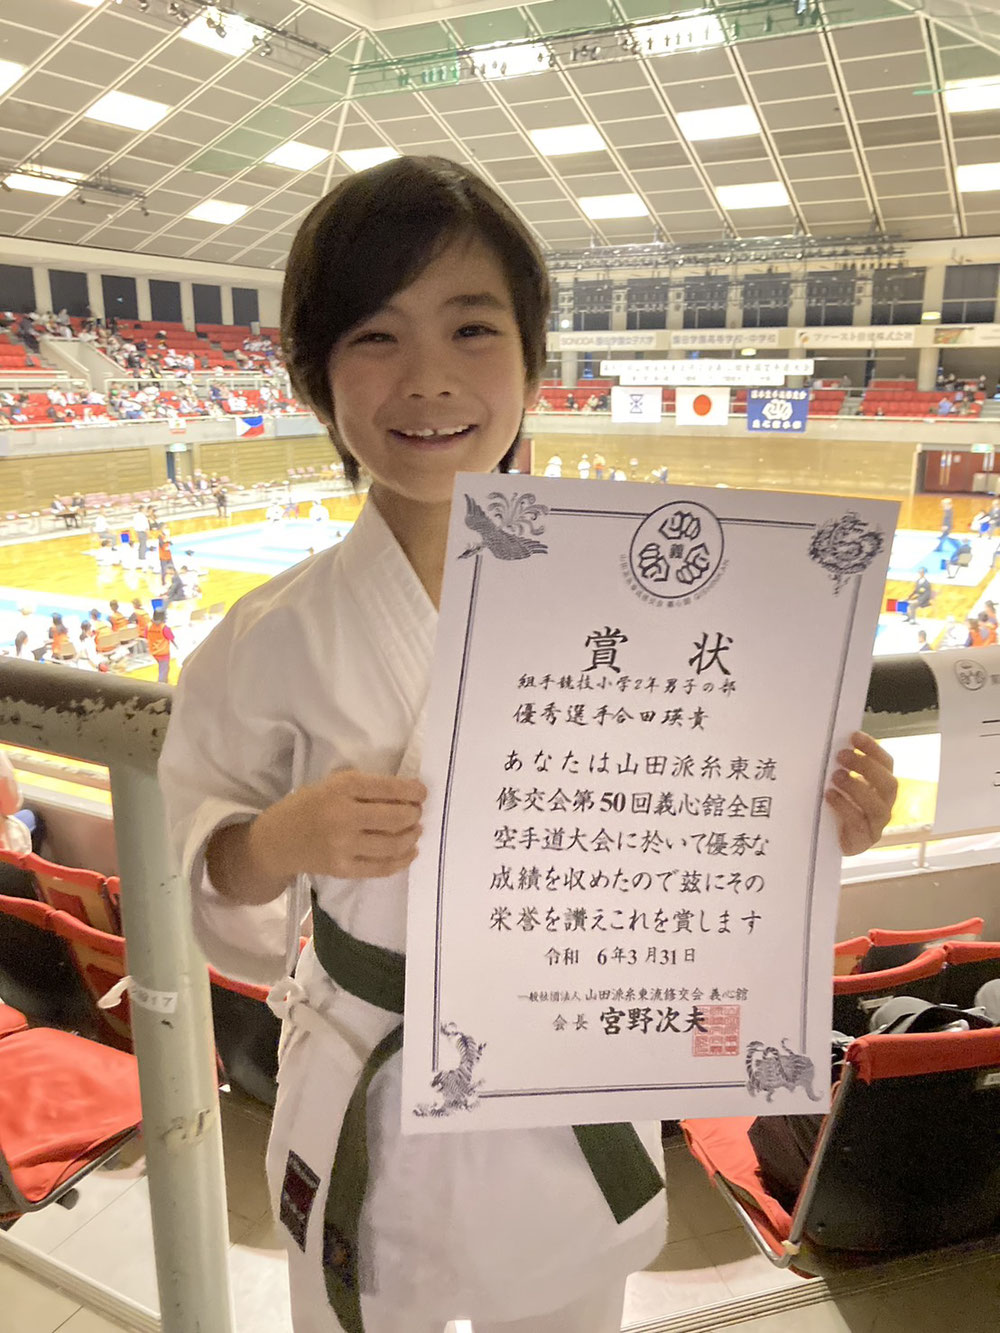 SONODA 園田学園女子大学
園田学園高等学校・中学校
ファースト住建株式会社
義
賞 状
組手競技小学2年男子の部
優秀選手合田瑛貴
あなたは山田派糸東流
修交会第50回義心館全国
空手道大会に於いて優秀な
成績を収めたので茲にその
栄誉を讃えこれを賞します
令和 6年3月31日
一般社団法人 山田派糸東流修交会 義心館
会長 宮野次夫